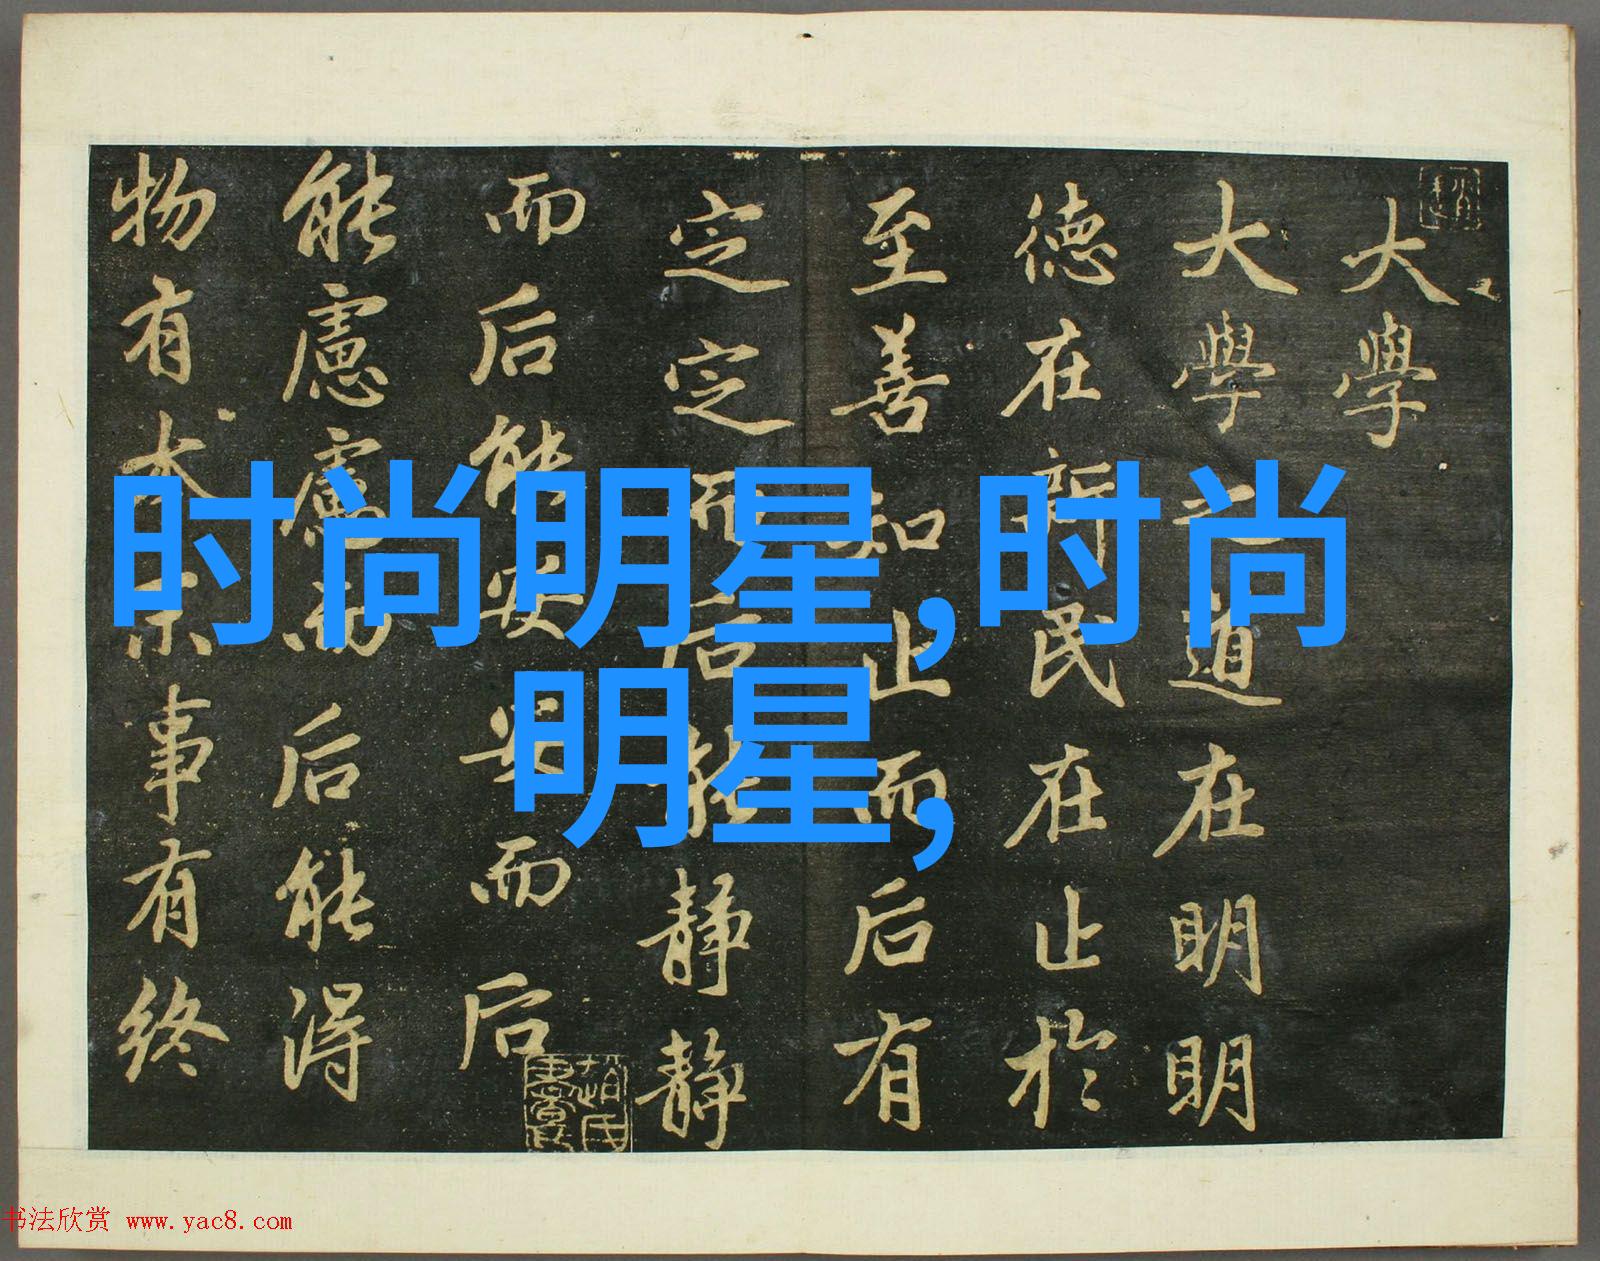 大學
大學之道在明明
德在新民在止於
至善知止而后有
定定而后能靜靜
而后能安安而后
能慮慮而后能得
物有本末事有終
时尚明星,时尚
明星,
书法欣赏 www.yac8.com